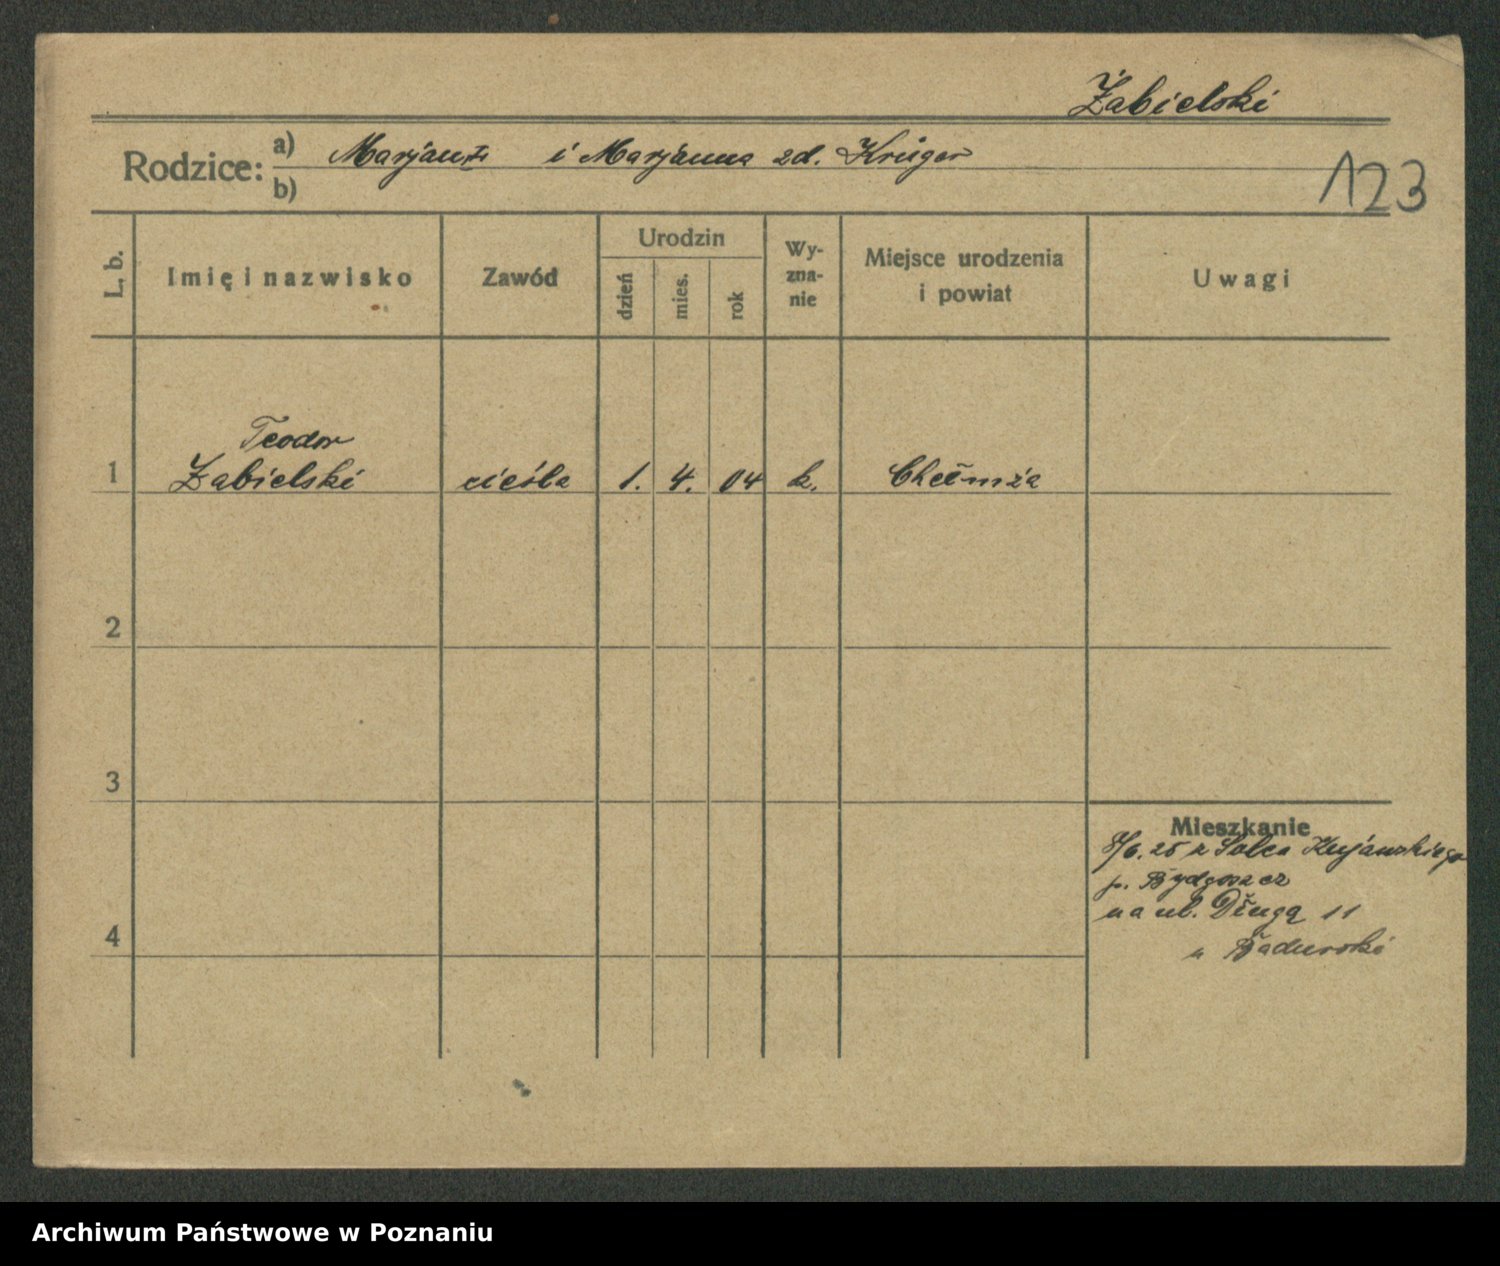 Żabielski
Rodzice: a) Marjan i Marjanna zd. Krüger
b)
123
L. b. Imię i nazwisko Zawód Urodzin dzień mies. rok Wy-zna-nie Miejsce urodzenia i powiat Uwagi
Teodor
1 Żabielski cieśla 1. 4. 04 k. Chełmża
2
3
Mieszkanie
8/6. 25 z Solca Kujawskiego
p. Bydgoszcz
na ul. Długą 11
4
u Badurski
Archiwum Państwowe w Poznaniu